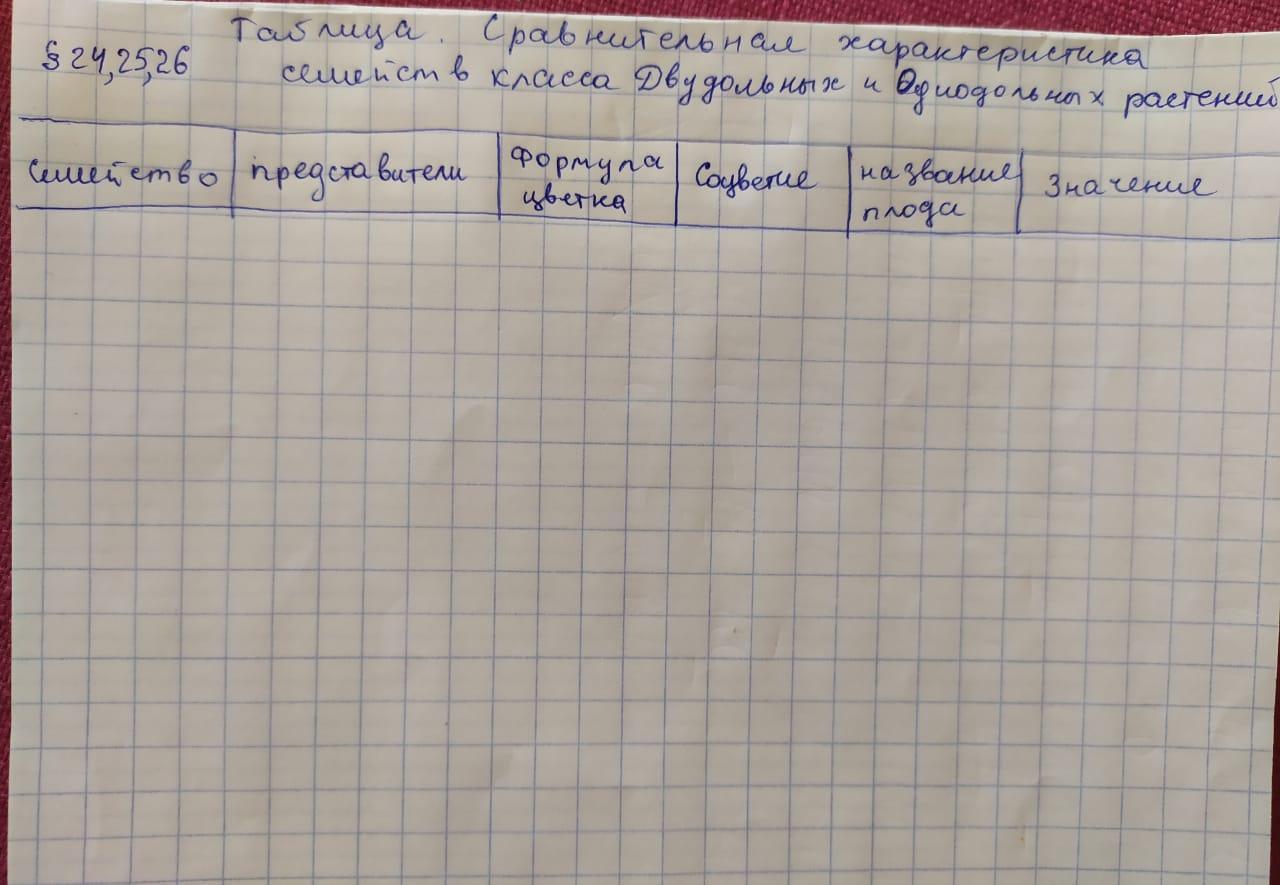 Таблица. Сравнительная характеристика
§ 24,25,26
семейств класса Двудольных и Однодольных растений
Семейство представители Формула цветка Соцветие название плода Значение